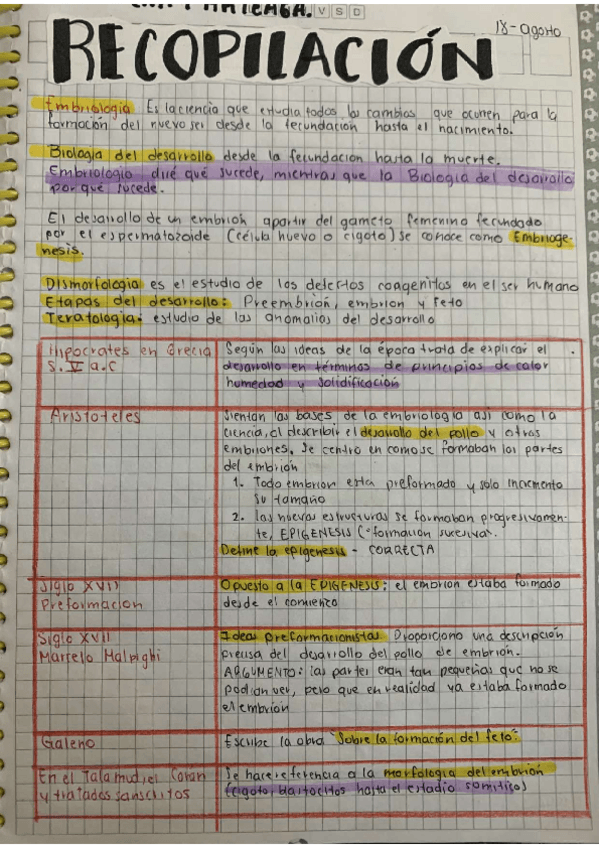 V S D
18-agosto
RECOPILACIÓN
Embriología Es la ciencia que estudia todos los cambios que ocurren para la
formación del nuevo ser desde la fecundación hasta el nacimiento.
Biología del desarrollo desde la fecundacion hasta la muerte.
Embriología dice qué sucede, mientras que la Biología del desarrollo
por qué sucede.
El desarrollo de un embrión apartir del gameto femenino fecundado
por el espermatozoide (célula huevo o cigoto) se conoce como Embriogé-
nesis.
Dismorfología es el estudio de los defectos congenitos en el ser humano
Etapas del desarrollo: Preembrión, embrion y feto
Teratología: estudio de las anomalías del desarrollo
Hipocrates en Grecia
S. V a.c
Según las ideas de la época trata de explicar el
desarrollo en términos de principios de calor
humedad y solidificación
Aristoteles
Sientan las bases de la embriología así como la
ciencia, al describir el desarrollo del pollo y otros
embriones. Se centro en como se formaban las partes
del embrión
1. Todo embrion esta preformado y solo incrementa
su tamaño
2. las nuevas estructuras se formaban progresivamen-
te, EPIGENESIS (=formacion sucesiva).
Define la epigenesis - CORRECTA
Siglo XVII
Preformacion
Opuesto a la EPIGENESIS: el embrion estaba formado
desde el comienzo
Siglo XVII
Marcelo Malpighi
Ideas preformacionistas Proporciono una descripción
precisa del desarrollo del pollo de embrión.
ARGUMENTO: las partes eran tan pequeñas que no se
podían ver, pero que en realidad ya estaba formado
el embrión
Galeno
Escribe la obra "Sobre la formación del feto".
En el Talamud, el Coran
y tratados sanscritos
Se hace referencia a la morfología del embrión
(cigoto, blastocitos hasta el estadio somitico)